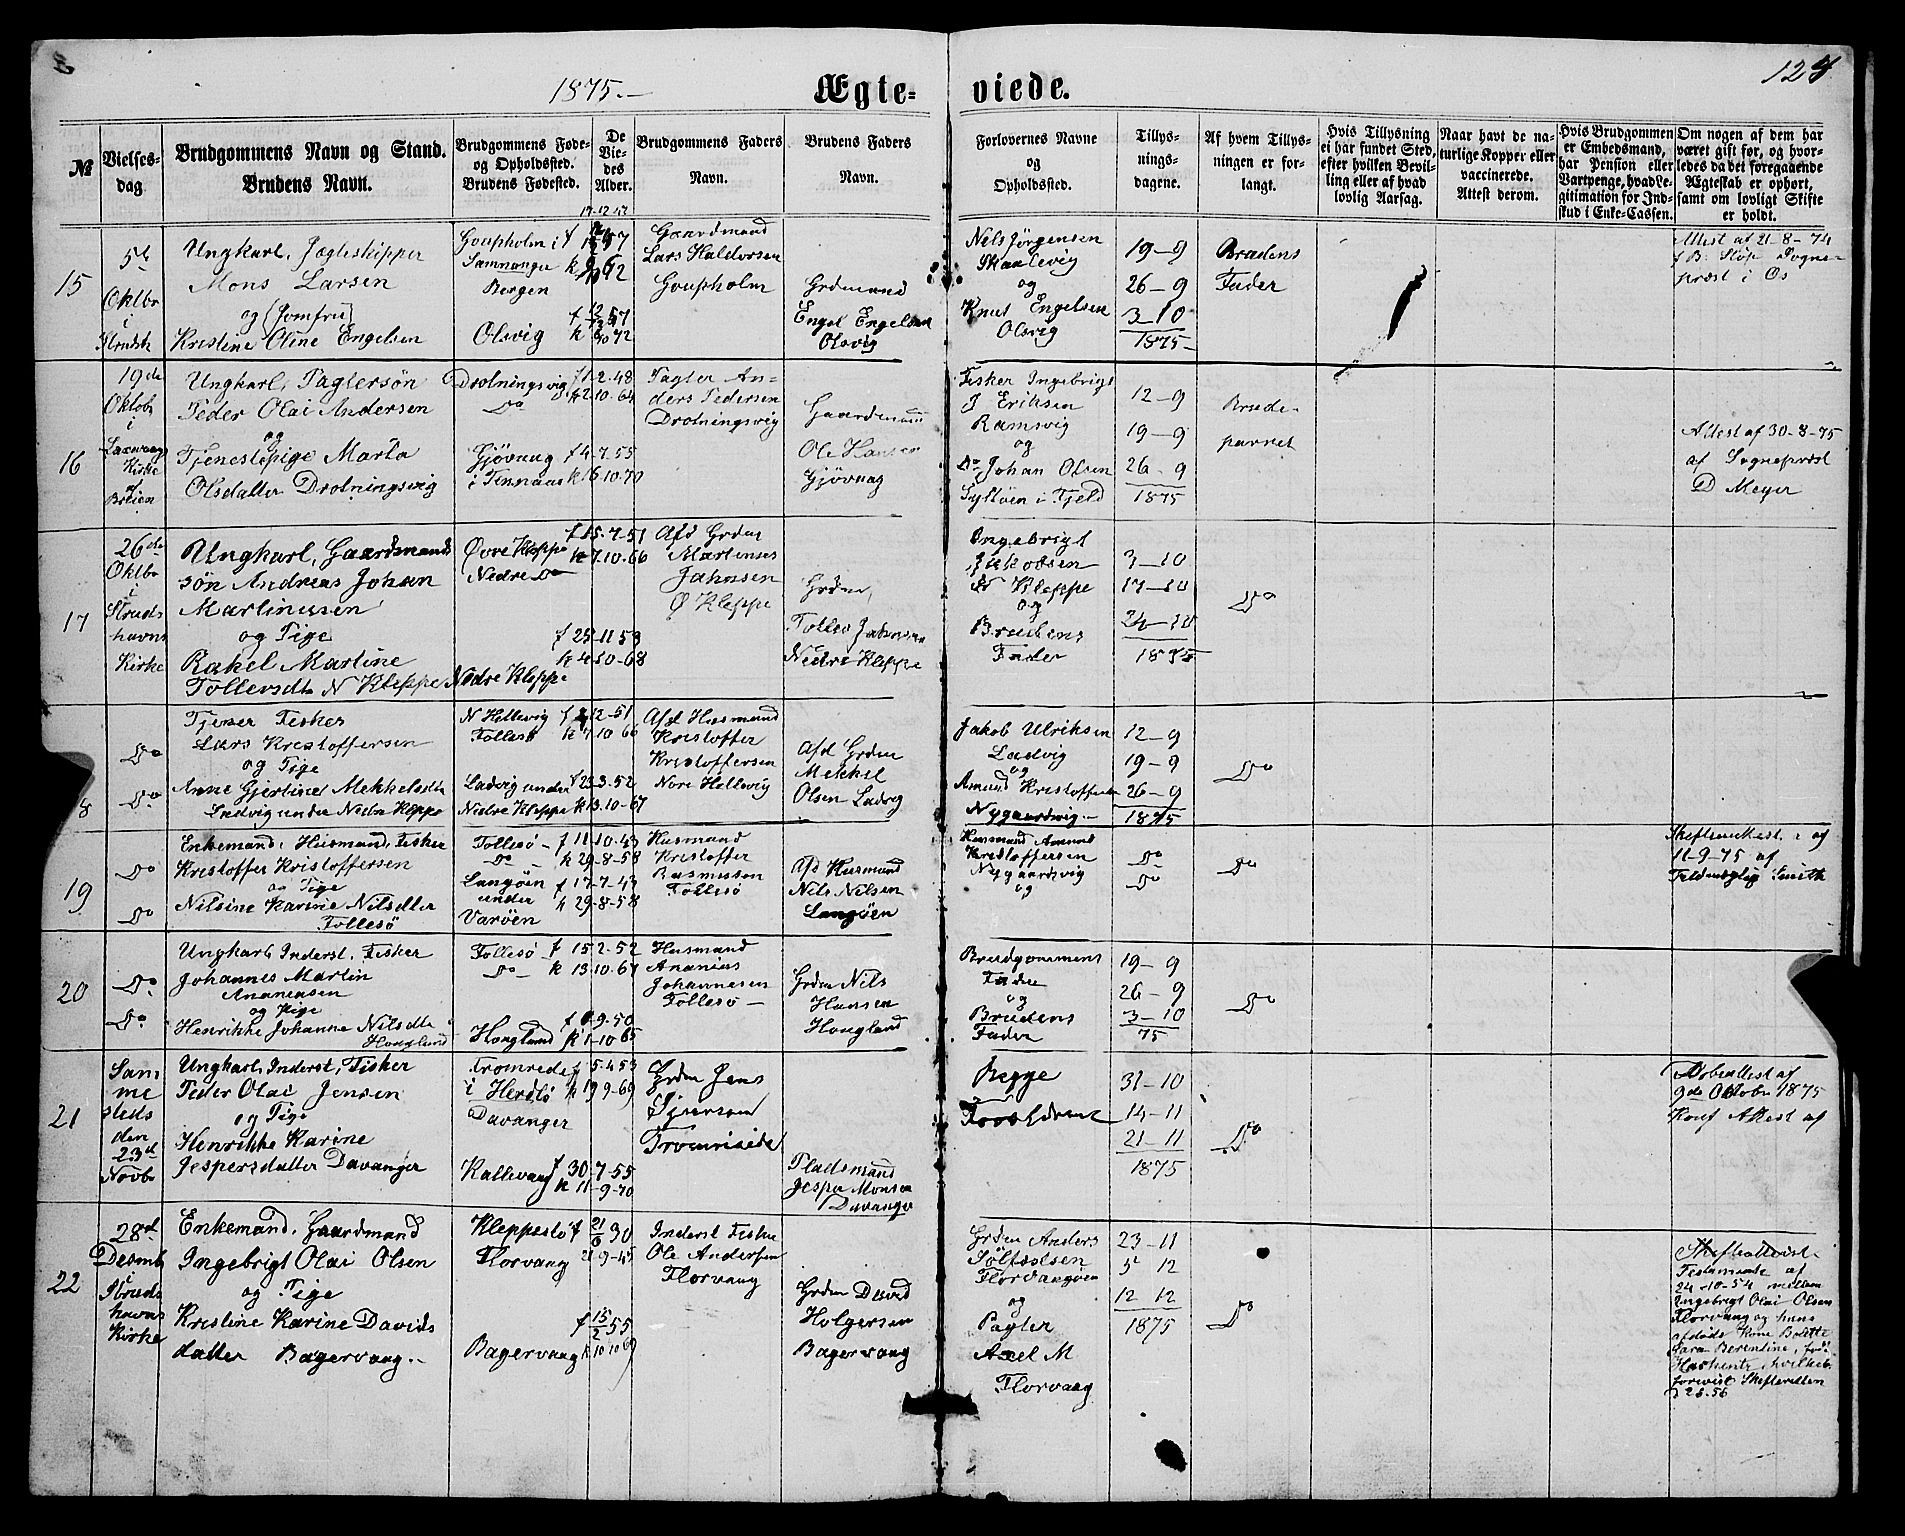 1875.
Ægte-
viede.
124
№
Vielses-
dag
Brudgommens Navn og Stand.
Brudens Navn.
Brudgommens Føde-
og Opholdssted.
Brudens Fødested.
De
Vie-
des
Alder.
Brudgommens Faders
Navn.
Brudens Faders
Navn.
Forlovernes Navne
og
Opholdssted.
Tillys-
nings-
dagene.
Af hvem Tillys-
ningen er for-
langt.
Hvis Tillysning
ei har fundet Sted,
efter hvilken Bevil-
ling eller af hvad
lovlig Aarsag.
Naar havt de na-
turlige Kopper eller
vaccinerede.
Attest derom.
Hvis Brudgommen
er Embedsmand,
har Pension eller
Vartpenge, hvad Le-
gitimation for Ind-
skud i Enke-Cassen.
Om nogen af dem har
været gift før, og hvor-
ledes da det foregaaende
Ægteskab er ophørt,
samt om lovligt Skifte
er holdt.
15
5te
Oktbr
i
Ungkarl, Jagteskipper
Mons Larsen
og (Jomfru)
Kristine Oline Engelsen
Samnanger
Bergen
Olsvig
Gaardmand
Lars Haldorsen
Goupholm
Grdmand
Engel Engelsen
Olsvig
Nels Jörgensen
Skaalevig
og
Knut Engelsen
Olsvig
19-9
26-9
3-10
1875
Brudens
Fader
Attest af 21-8-74
Sogne-
præst i Os
16
19de
Oktob
i
Laxevaag
Kirke
Ungkarl, Paglersön
Peder Olai Andersen
og
Tjenestepige Marta
Olsdatter Drotningsvig
Drotningsvig f 1-2-48
Do k 2-10-64
Gjövaag f 4-7-55
k 16-10-70
Pagler An-
ders Pedersen
Drotningsvig
Gaardmand
Ole Hansen
Gjövaag
Fisker Ingebrigt
J Eriksen
Ramsvig
og
Do Johan Olsen
Syltöen i Fjeld
12-9
19-9
26-9
1875
Brude-
parret
Attest af 30-8-75
af Sognepræst
D Meyer
17
26de
Oktbr
i
Struds-
havns
Kirke
Ungkarl, Gaardmands
sön Andreas Johan
Martinusen
og Pige
Rakel Martine
Tollevsdtr N Kleppe
Övre Kleppe
Nedre Do
Nedre Kleppe
f 15-7-51
k 7-10-66
f 25-11-53
k 4-10-68
Afd Grdm
Martinus
Jahnsen
Ö Kleppe
Grdm
Tollev Jahnsen
Nedre Kleppe
Ingebrigt
Jakobsen
N Kleppe
og
Brudens
Fader
3-10
17-10
24-10
1875
Do
18
Do
Do
Tjener Fisker
Lars Kristoffersen
og Pige
Anne Gjertine Mekkelsdtr
Ladvig under Nedre Kleppe
N Hellevig
Follesö
Ladvig under
Nedre Kleppe
f 23-3-52
k 13-10-67
Afd Husmand
Kristoffer
Kristoffersen
Nore Hellevig
Afd Grdm
Mekkel
Olsen Ladvig
Jakob Ulriksen
Ladvig
og
Amund Kristoffersen
Nygaardsvig
12-9
19-9
26-9
1875
Do
19
Do
Do
Enkemand, Husmand, Fisker
Kristoffer Kristoffersen
og Pige
Nilsine Karine Nilsdtter
Follesö
Follesö f 11-10-43
Do k 29-8-58
Langöen f 17-7-43
under k 29-8-58
Varöen
Husmand
Kristoffer
Rasmussen
Follesö
Afd Husmand
Nils Nilsen
Langöen
Husmand Amund
Kristoffersen
Nygaardsvig
og
Do
Do
Do
Skifteattest af
11-9-75 af
Smith
20
Do
Do
Ungkarl, Inderst, Fisker
Johannes Martin
Ananiassen
og Pige
Henrikke Johanne Nilsdtr
Hougland
Follesö f 15-2-52
Do k 13-10-67
Hougland
k 1-10-65
Husmand
Ananias
Johannesen
Follesö
Grdm Nils
Hansen
Hougland
Brudgommens
Fader
og
Brudens
Fader
19-9
26-9
3-10
75
Do
21
Sam-
me
steds
den
23de
Novbr
Ungkarl, Inderst, Fisker
Peder Olai Jensen
og Pige
Henrikke Karine
Jespersdatter Davanger
Tromrede
i Herdlö
Davanger
f 5-4-53
k 19-9-69
f 30-7-55
k 11-9-70
Grdm Jens
Pladsmand
Jesper Monsen
Davanger
Begge
Forældrene
31-10
14-11
21-11
1875
Do
9de Oktbr 1875
Konf Attest af
22
28de
Desmb
i
Struds-
havns
Kirke
Enkemand, Gaardmand
Ingebrigt Olai Olsen
og Pige
Kristine Karine Davids
datter Bagervaag
Kleppestö
Florvaag
f 15/2 55
Bagervaag k 10 10 69
Inderst Fisker
Ole Andersen
Florvaag
Grdm David
Holgersen
Bagervaag
Grdm Anders
Florvaagöen
og
Pagler
Axel M
Florvaag
23-11
5 12
12 12
1875
Do
Skifteattest
Testamente af
24-10-54 mellem
Ingebrigt Olai Olsen
Florvaag og hans
afdöde Kone Bolette
Sara Berentine, födt
forevist Skifteretten